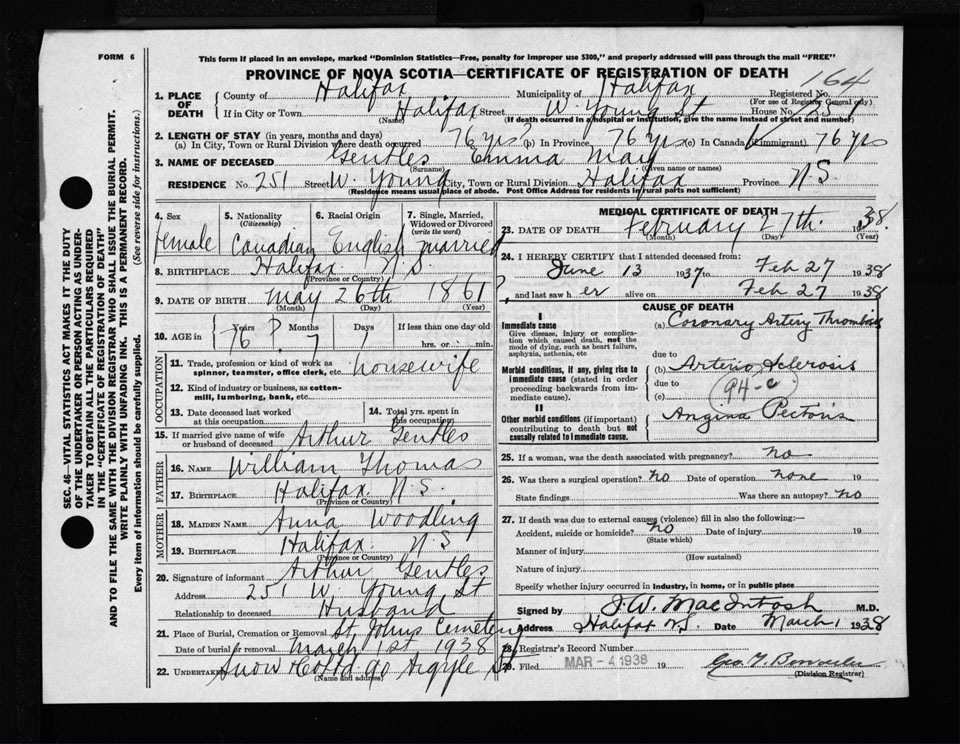 FORM 6
This form if placed in an envelope, marked "Dominion Statistics—Free, penalty for improper use $300," and properly addressed will pass through the mail "FREE"
PROVINCE OF NOVA SCOTIA—CERTIFICATE OF REGISTRATION OF DEATH
164
1. PLACE OF DEATH
County of Halifax Municipality of Halifax Registered No.
(For use of Registrar General only)
If in City or Town Halifax Street W. Young St House No. 251
(Name) (If death occurred in a hospital or institution, give the name instead of street and number)
2. LENGTH OF STAY (in years, months and days)
(a) In City, Town or Rural Division where death occurred 76 yrs? (b) In Province 76 yrs (c) In Canada (if immigrant) 76 yrs
3. NAME OF DECEASED Gentles Emma May
(Surname) (Given name or names)
RESIDENCE No. 251 Street W. Young City, Town or Rural Division Halifax Province N.S.
(Residence means usual place of abode. Post Office Address for residents in rural parts not sufficient)
4. Sex female
5. Nationality (Citizenship) Canadian
6. Racial Origin English
7. Single, Married, Widowed or Divorced (write the word) married
8. BIRTHPLACE Halifax N.S.
(Province or Country)
9. DATE OF BIRTH May 26th 1861?
(Month) (Day) (Year)
10. AGE in Years Months Days If less than one day old
76 ? 7 hrs. or min.
OCCUPATION
11. Trade, profession or kind of work as spinner, teamster, office clerk, etc. housewife
12. Kind of industry or business, as cotton-mill, lumbering, bank, etc.
13. Date deceased last worked at this occupation
14. Total yrs. spent in this occupation
15. If married give name of wife or husband of deceased Arthur Gentles
FATHER
16. NAME William Thomas
17. BIRTHPLACE Halifax N.S.
(Province or Country)
MOTHER
18. MAIDEN NAME Anna Woodling
19. BIRTHPLACE Halifax N.S
(Province or Country)
20. Signature of informant Arthur Gentles
Address 251 W. Young St
Relationship to deceased Husband
21. Place of Burial, Cremation or Removal St. Johns Cemetery
Date of burial or removal March 1st 1938
22. Undertaker Snow & Co Ltd 90 Argyle St
(Name and address)
MEDICAL CERTIFICATE OF DEATH
23. DATE OF DEATH February 27th 1938.
(Month) (Day) (Year)
24. I HEREBY CERTIFY that I attended deceased from:
June 13 1937 to Feb 27 1938
and last saw her alive on Feb 27 1938
CAUSE OF DEATH
I
Immediate cause
Give disease, injury or complication which caused death, not the mode of dying, such as heart failure, asphyxia, asthenia, etc
(a) Coronary Artery Thrombosis
due to
Morbid conditions, if any, giving rise to immediate cause (stated in order proceeding backwards from immediate cause).
(b) Arterio Sclerosis
due to
(c) (94-a)
II
Other morbid conditions (if important) contributing to death but not causally related to immediate cause.
Angina Pectoris
25. If a woman, was the death associated with pregnancy? no
26. Was there a surgical operation? no Date of operation none 19
State findings Was there an autopsy? no
27. If death was due to external causes (violence) fill in also the following:—
Accident, suicide or homicide? no Date of injury 19
(State which)
Manner of injury
(How sustained)
Nature of injury
Specify whether injury occurred in industry, in home, or in public place
Signed by J. W. MacIntosh M.D.
Address Halifax N.S. Date March 1 1938
28. Registrar's Record Number
29. Filed MAR - 4 1938 19
(Division Registrar)
SEC. 46—VITAL STATISTICS ACT MAKES IT THE DUTY
OF THE UNDERTAKER OR PERSON ACTING AS UNDER-
TAKER TO OBTAIN ALL THE PARTICULARS REQUIRED
IN THE "CERTIFICATE OF REGISTRATION OF DEATH"
AND TO FILE THE SAME WITH THE DIVISION REGISTRAR WHO SHALL ISSUE THE BURIAL PERMIT.
WRITE PLAINLY WITH UNFADING INK. THIS IS A PERMANENT RECORD.
Every item of information should be carefully supplied. (See reverse side for instructions.)